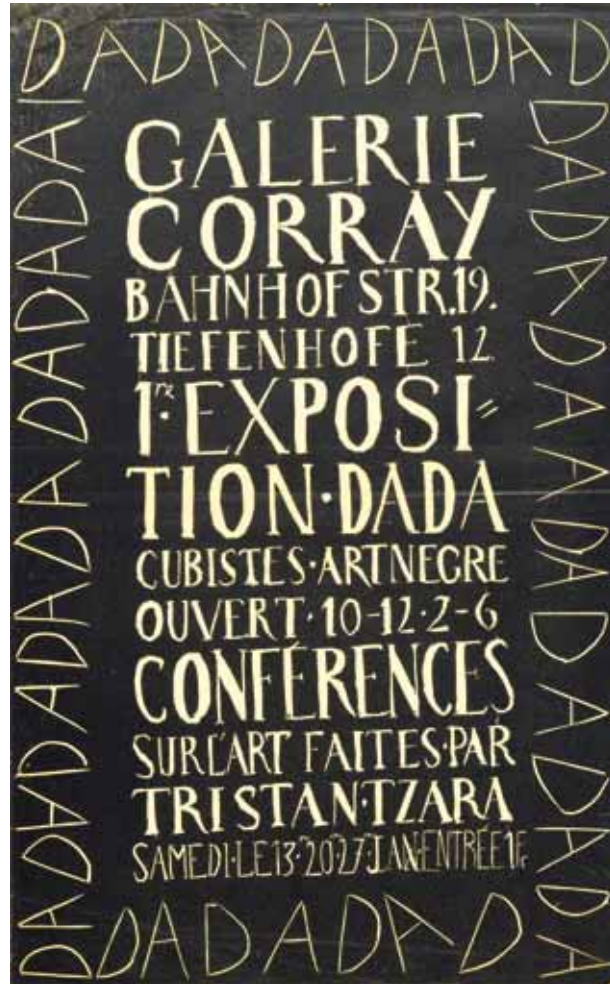 DADADADADAD
GALERIE
CORRAY
BAHNHOFSTR.19.
TIEFENHOFE 12
1re·EXPOSI=
TION·DADA
CUBISTES·ART NEGRE
OUVERT·10-12·2-6
CONFÉRENCES
SUR L'ART FAITES·PAR
TRISTAN·TZARA
SAMEDI·LE 13·20·27·JAN·ENTRÉE 1Fr
DADADADADADADADAI
DADADAADADADADADA
DADADAD